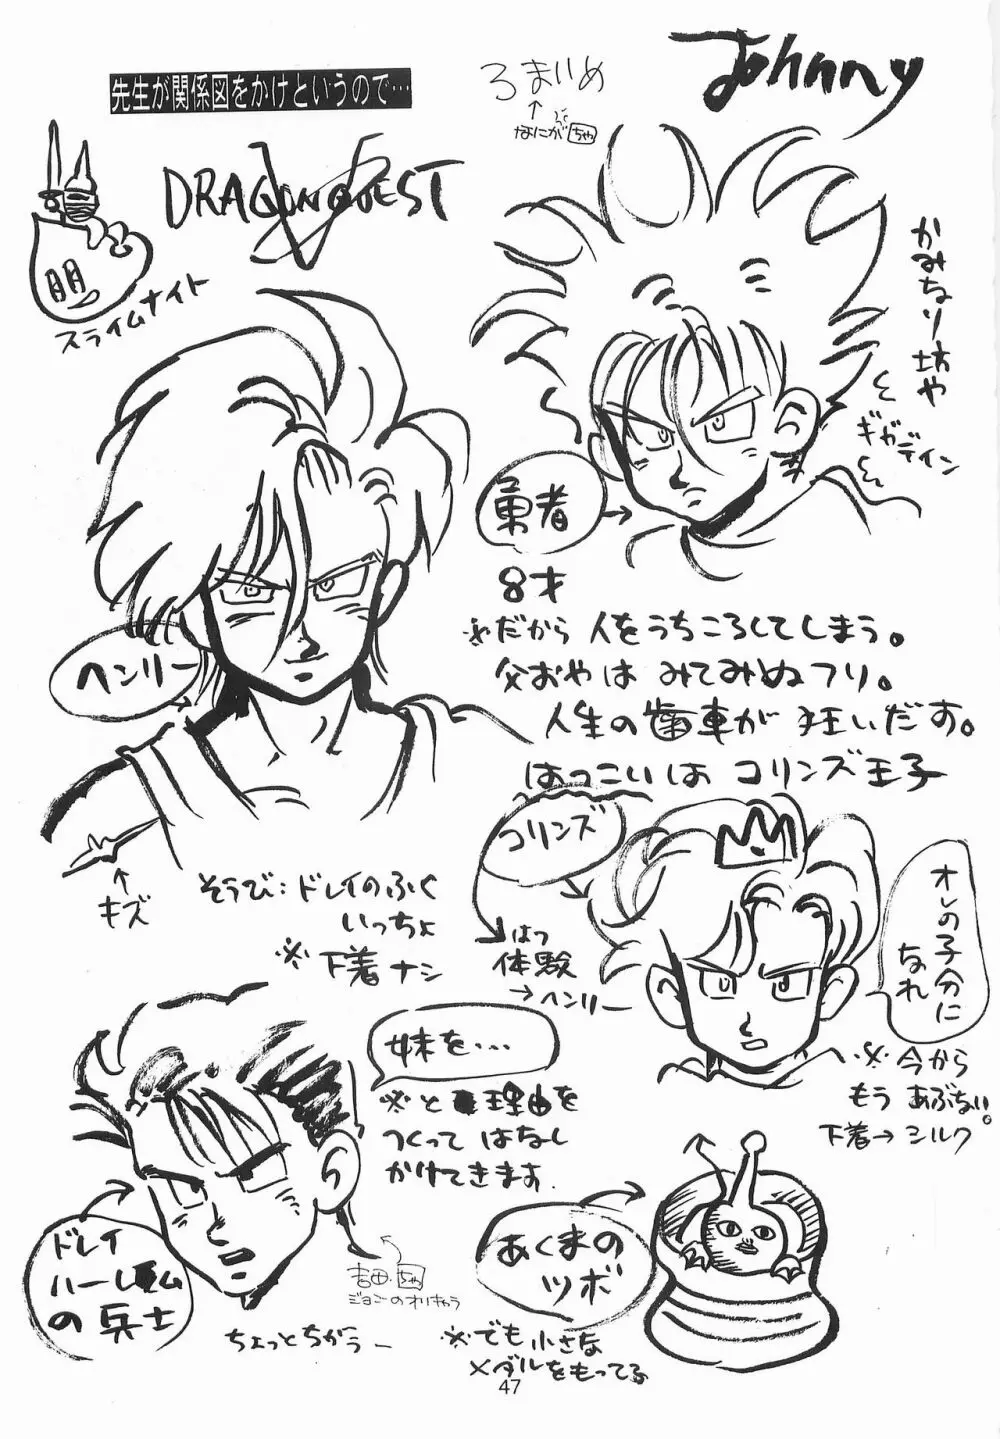 先生が関係図をかけというので…
Johnny
ろまいめ
↑
なにが
ちゃ
DRAGONQUEST
V
スライムナイト
かみなり坊や
ギガデイン
勇者
8才
※だから 人をうちころしてしまう。
父おやは みてみぬフリ。
人生の歯車が 狂いだす。
はつこいは コリンズ王子
ヘンリー
↑
キズ
そうび:ドレイのふく
いっちょ
※下着ナシ
コリンズ
はつ
体験
→ヘンリー
オレの子分に
なれ
※今から
もう あぶない。
下着→シルク
妹を…
※と 理由を
つくって はなし
かけてきます.
ドレイ
ハーレムの兵士
ちゃ
ジョニーのオリキャラ
ちょっとちがうー
あくまの
ツボ
※でも 小さな
メダルをもってる
47